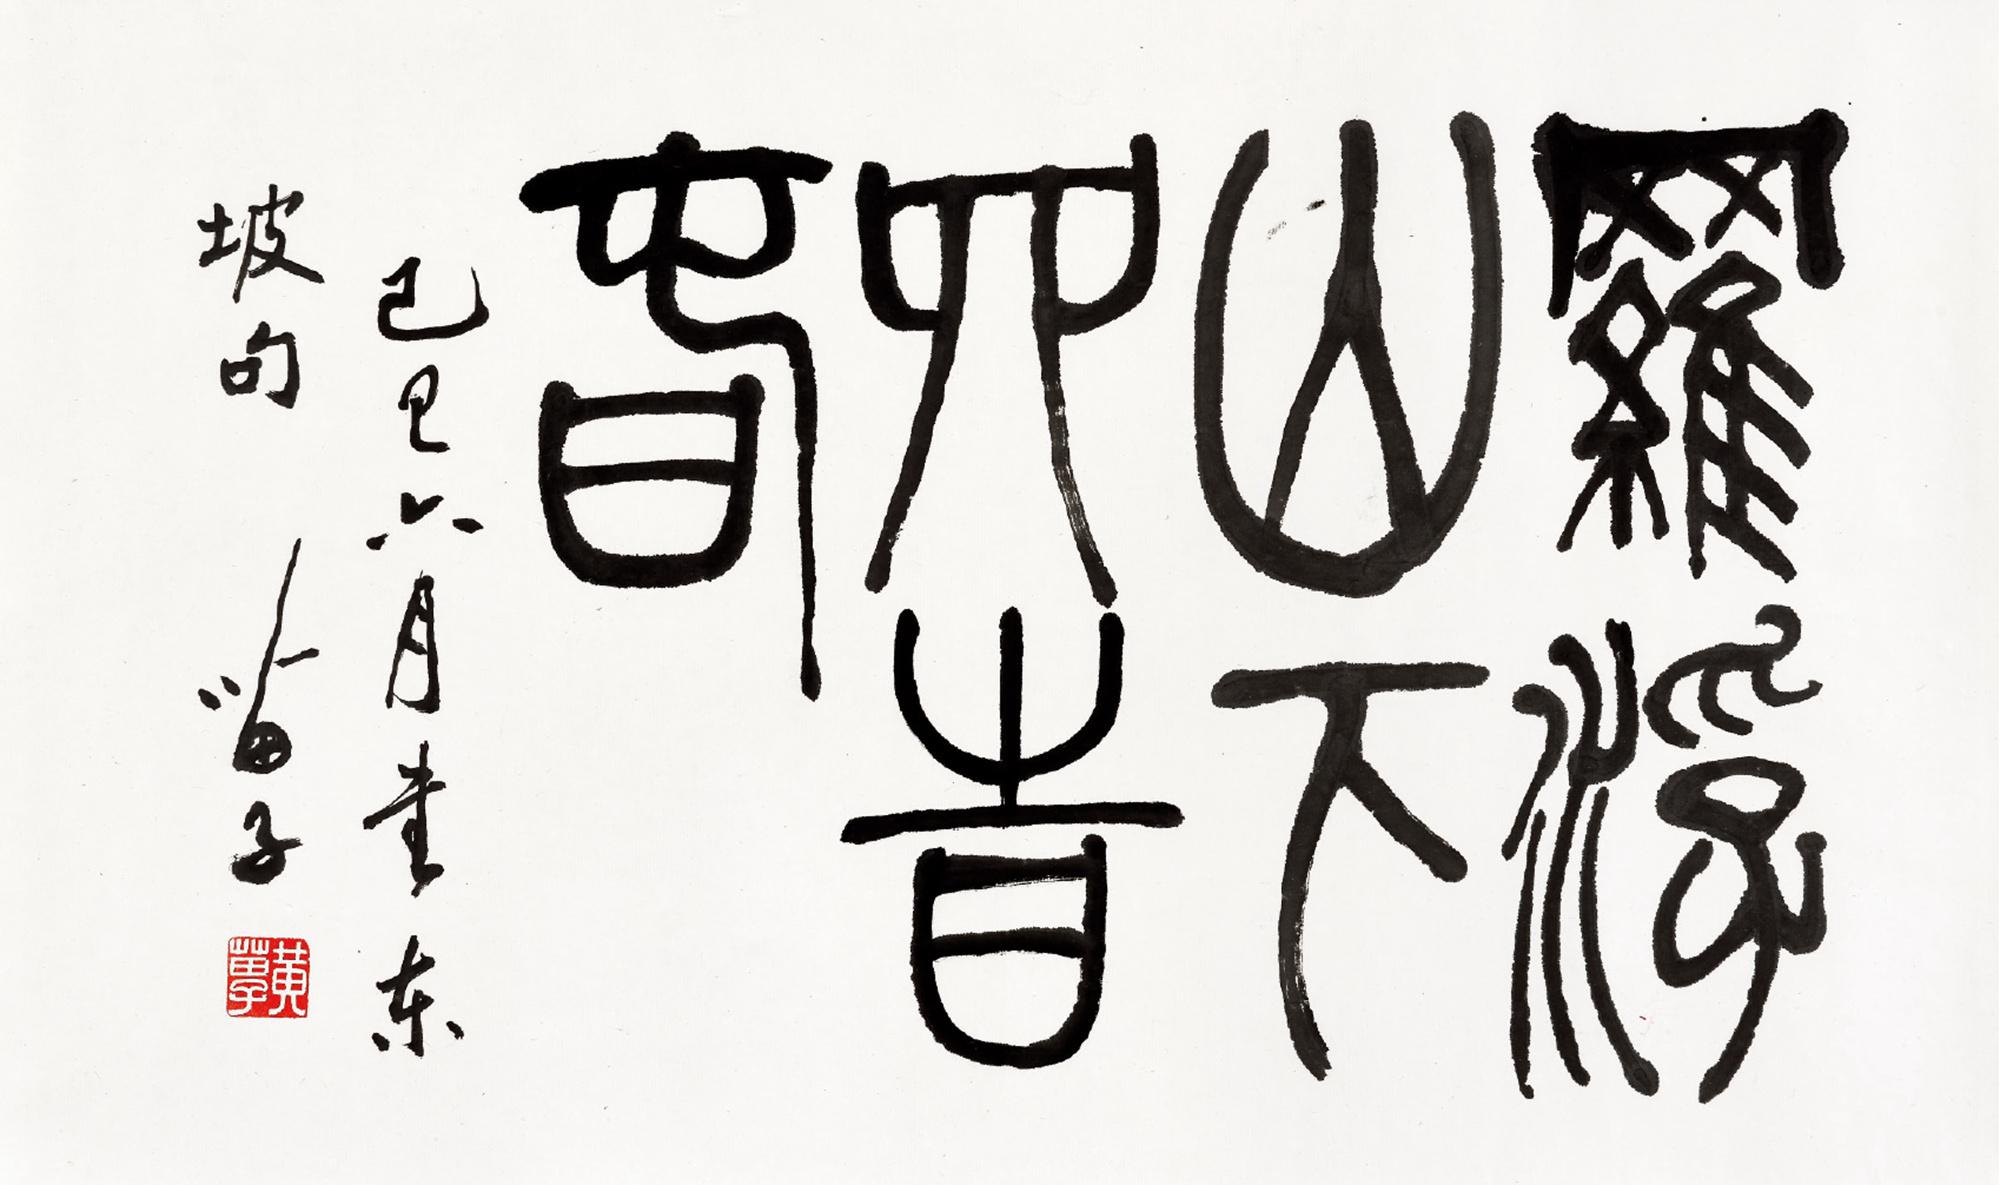 羅浮
山下
四旹
春
己巳六月書東
坡句 苗子
黄苗子